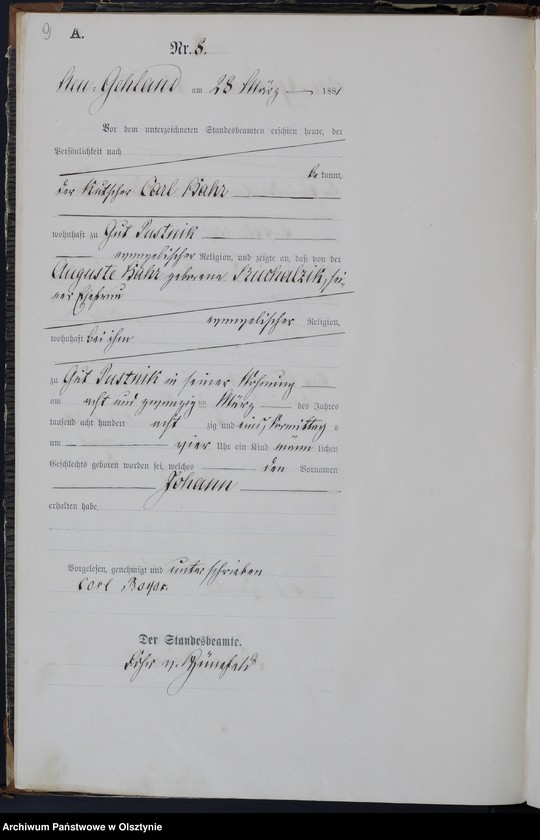 9
A.
Nr. 8.
Neu-Gehland am 28 März 1881
Vor dem unterzeichneten Standesbeamten erschien heute, der
Persönlichkeit nach
be kannt,
der Kutscher Carl Bahr
wohnhaft zu Gut Pustnik
evangelischer Religion, und zeigte an, daß von der
Auguste Bahr geborene Pruchalzik, sei-
ner Ehefrau
evangelischer Religion,
wohnhaft bei ihm
zu Gut Pustnik in seiner Wohnung
am acht und zwanzig ten März des Jahres
tausend acht hundert acht zig und eins, Vormittag s
um vier Uhr ein Kind männ lichen
Geschlechts geboren worden sei, welches den Vornamen
Johann
erhalten habe.
Vorgelesen, genehmigt und unterschrieben
Carl
Der Standesbeamte.
v. Hünefeld
Archiwum Państwowe w Olsztynie